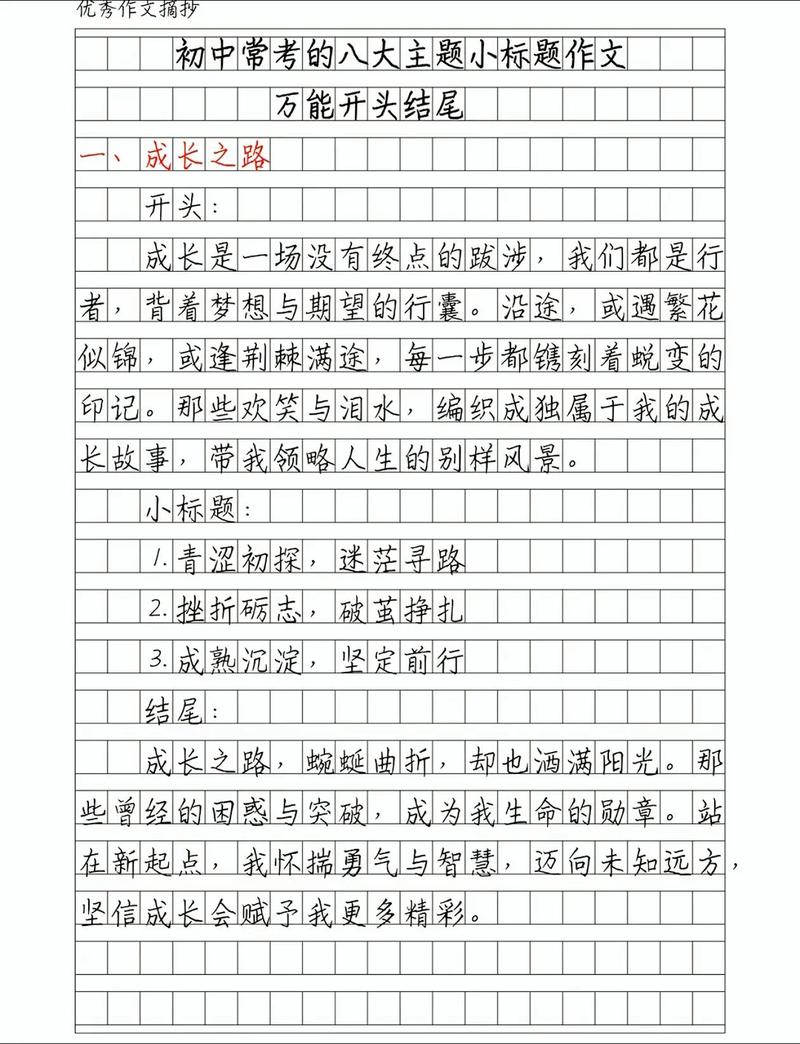 优秀作文摘抄
初中常考的八大主题小标题作文
万能开头结尾
一、成长之路
开头：
成长是一场没有终点的跋涉，我们都是行
者，背着梦想与期望的行囊。沿途，或遇繁花
似锦，或逢荆棘满途，每一步都镌刻着蜕变的
印记。那些欢笑与泪水，编织成独属于我的成
长故事，带我领略人生的别样风景。
小标题：
1.青涩初探，迷茫寻路
2.挫折砺志，破茧挣扎
3.成熟沉淀，坚定前行
结尾：
成长之路，蜿蜒曲折，却也洒满阳光。那
些曾经的困惑与突破，成为我生命的勋章。站
在新起点，我怀揣勇气与智慧，迈向未知远方，
坚信成长会赋予我更多精彩。